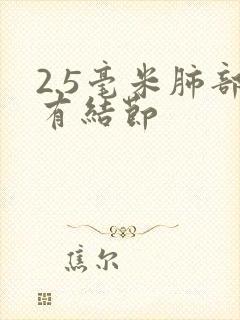 2.5毫米肺部
有結節
焦尔